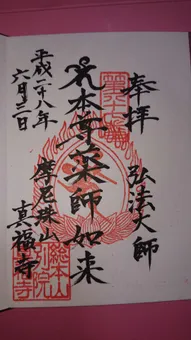 奉拝
弘法大師
本尊薬師如来
摩尼珠山
真福寺
平成二十八年
六月三日
総本山
別院
真福寺